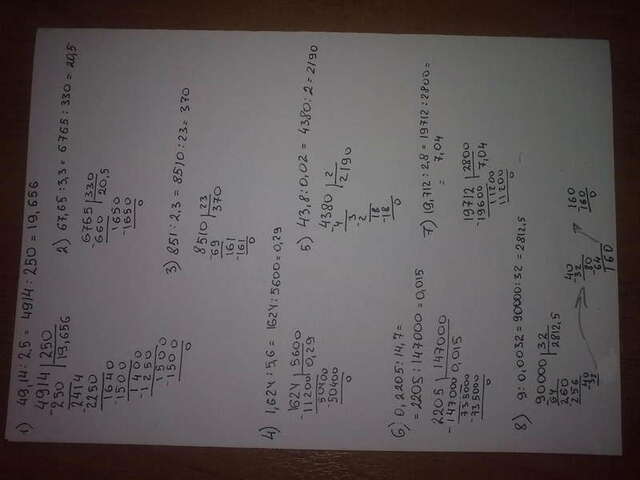 1) 49,14 : 2,5 = 4914 : 250 = 19,656
4914 | 250
-250 | 19,656
2414
2250
1640
-1500
1400
-1250
1500
-1500
0
2) 67,65 : 3,3 = 6765 : 330 = 20,5
6765 | 330
-660 | 20,5
1650
-1650
0
3) 851 : 2,3 = 8510 : 23 = 370
8510 | 23
-69 | 370
161
-161
0
4) 1,624 : 5,6 = 1624 : 5600 = 0,29
1624 | 5600
-11200 | 0,29
50400
50400
0
5) 43,8 : 0,02 = 4380 : 2 = 2190
4380 | 2
-4 | 2190
3
-2
18
-18
0
6) 0,2205 : 14,7 =
= 2205 : 147000 = 0,015
2205 | 147000
-147000 | 0,015
735000
-735000
0
7) 19,712 : 2,8 = 19712 : 2800 =
= 7,04
19712 | 2800
-19600 | 7,04
11200
11200
0
8) 9 : 0,0032 = 90000 : 32 = 2812,5
90000 | 32
64 | 2812,5
260
256
40
32
40
-32
80
-64
160
160
160
0